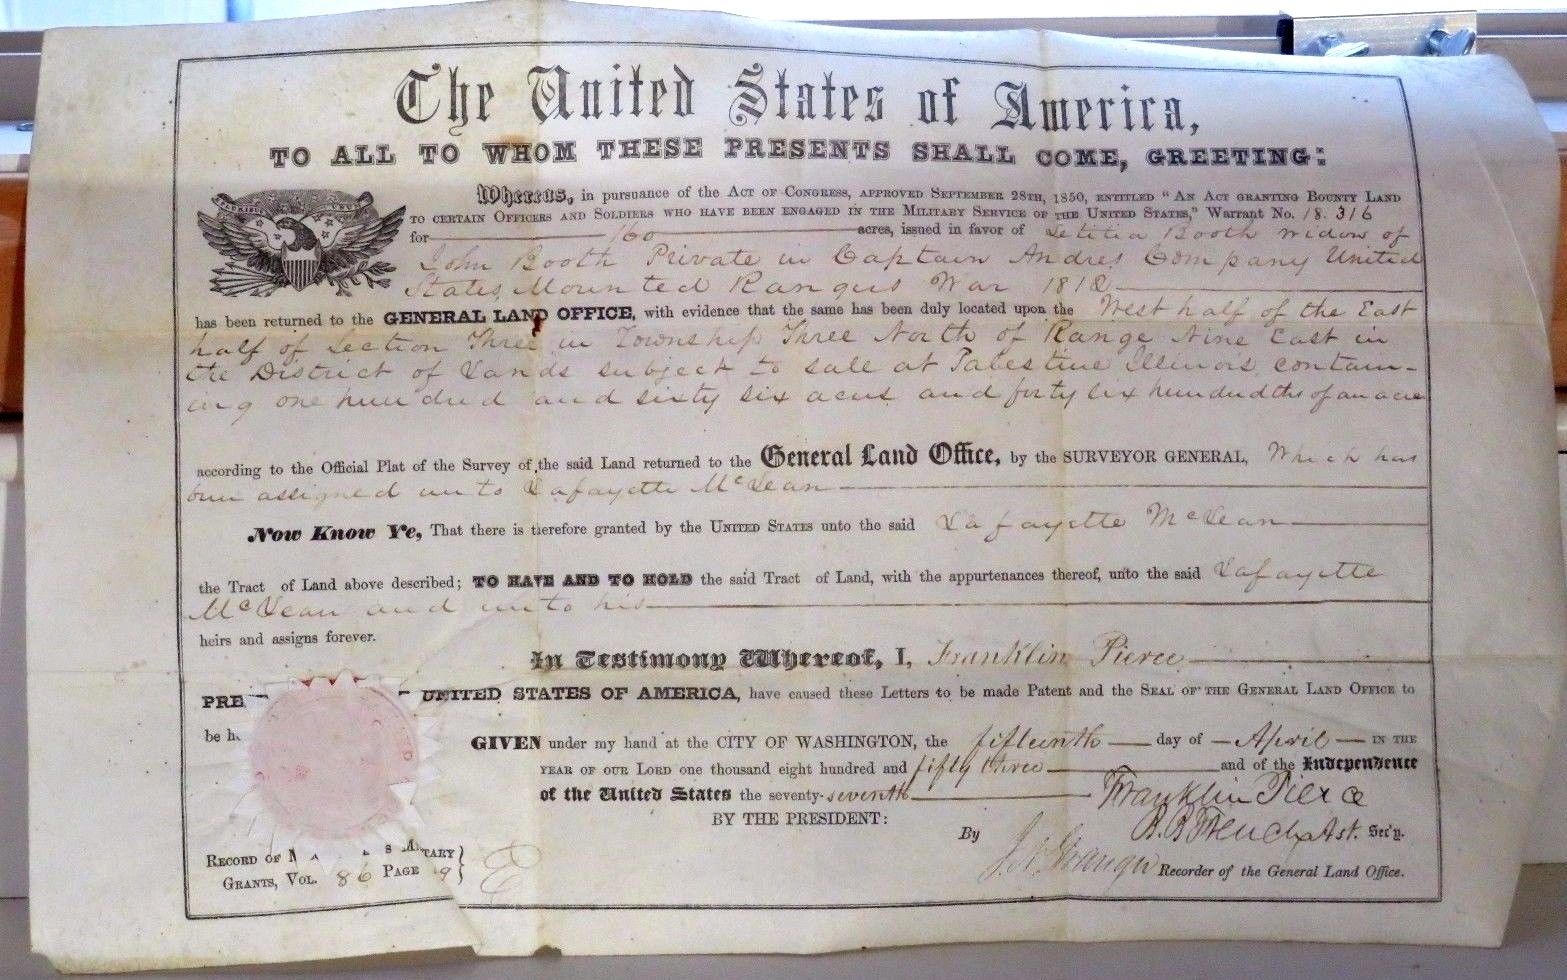 The United States of America,
TO ALL TO WHOM THESE PRESENTS SHALL COME, GREETING:
Whereas, in pursuance of the Act of Congress, approved September 28th, 1850, entitled "An Act granting Bounty Land
to certain Officers and Soldiers who have been engaged in the Military Service of the United States," Warrant No. 18.316
for 160 acres, issued in favor of Letitia Booth widow of
John Booth Private in Captain Andres Company United
States Mounted Rangers War 1812
has been returned to the GENERAL LAND OFFICE, with evidence that the same has been duly located upon the West half of the East
half of Section Three in Township Three North of Range Nine East in
the District of Lands subject to sale at Palestine Illinois contain-
ing one hundred and sixty six acres and forty six hundredths of an acre
according to the Official Plat of the Survey of the said Land returned to the General Land Office, by the SURVEYOR GENERAL, Which has
been assigned unto Lafayette McLean
Now Know Ye, That there is therefore granted by the United States unto the said Lafayette McLean
the Tract of Land above described; TO HAVE AND TO HOLD the said Tract of Land, with the appurtenances thereof, unto the said Lafayette
McLean and unto his
heirs and assigns forever.
In Testimony Whereof, I, Franklin Pierce
PRE UNITED STATES OF AMERICA, have caused these Letters to be made Patent and the Seal of the General Land Office to
be h
GIVEN under my hand at the CITY OF WASHINGTON, the fifteenth day of April in the
year of our Lord one thousand eight hundred and fifty three and of the Independence
of the United States the seventy-seventh
BY THE PRESIDENT: Franklin Pierce
By Ast. Sec'y.
Recorder of the General Land Office.
Record of
Grants, Vol. 86 Page